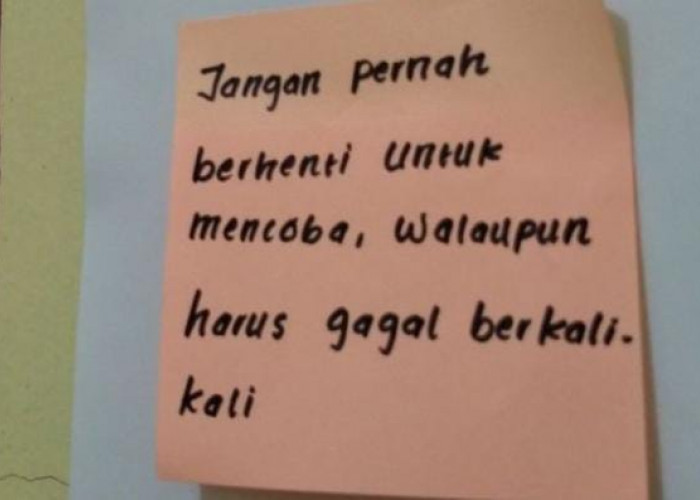 Jangan pernah
berhenti untuk
mencoba, walaupun
harus gagal berkali-
kali